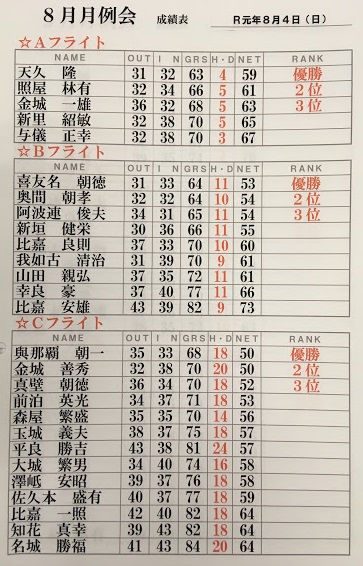 ８月月例会 成績表 R元年８月４日（日）
☆Ａフライト
NAME OUT I N GRS H・D NET RANK
天久 隆 31 32 63 4 59 優勝
照屋 林有 32 34 66 5 61 ２位
金城 一雄 36 32 68 5 63 ３位
新里 紹敏 32 38 70 5 65
与儀 正幸 32 38 70 3 67
☆Ｂフライト
NAME OUT I N GRS H・D NET RANK
喜友名 朝徳 31 33 64 11 53 優勝
奥間 朝孝 32 32 64 10 54 ２位
阿波連 俊夫 34 31 65 11 54 ３位
新垣 健栄 30 36 66 11 55
比嘉 良則 37 33 70 10 60
我如古 清治 31 39 70 9 61
山田 親弘 37 35 72 11 61
幸良 豪 37 40 77 11 66
比嘉 安雄 43 39 82 9 73
☆Ｃフライト
NAME OUT I N GRS H・D NET RANK
與那覇 朝一 35 33 68 18 50 優勝
金城 善秀 32 38 70 20 50 ２位
真壁 朝徳 36 34 70 18 52 ３位
前泊 英光 34 37 71 18 53
森屋 繁盛 35 35 70 14 56
玉城 義夫 38 37 75 18 57
平良 勝吉 43 38 81 24 57
大城 繁男 34 40 74 16 58
澤岻 安昭 39 37 76 18 58
佐久本 盛有 40 37 77 18 59
比嘉 一照 42 40 82 18 64
知花 真幸 39 43 82 18 64
名城 勝福 41 43 84 20 64